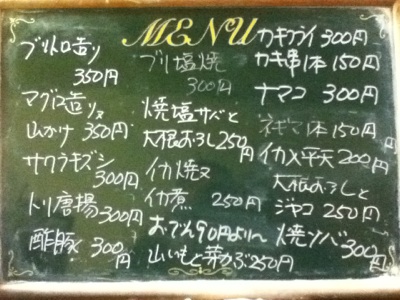 MENU
ブリトロ造り
350円
マグロ造り又
山かけ 350円
サクラキズシ
300円
トリ唐揚 300円
酢豚 300円
ブリ塩焼
300円
焼塩サバと
大根おろし 250円
イカ焼又
イカ煮 250円
おでん90円より
山いもと芽かぶ 250円
カキフライ 300円
カキ串1本 150円
ナマコ 300円
ネギマ1本 150円
イカメ平天 200円
大根おろしと
ジャコ 250円
焼ソバ 300円